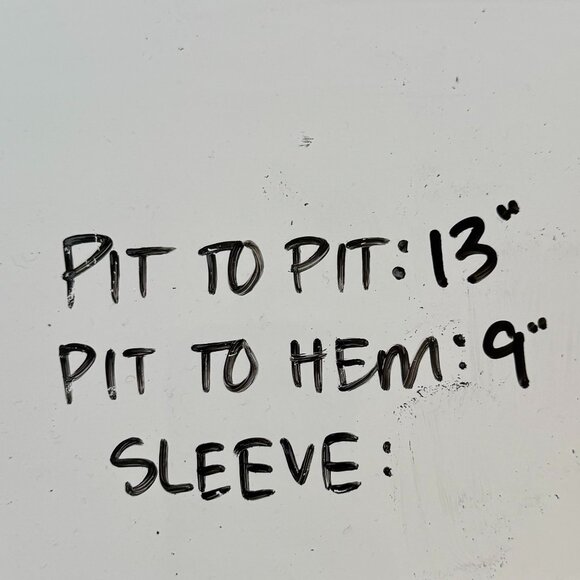 PIT TO PIT: 13"
PIT TO HEM: 9"
SLEEVE: